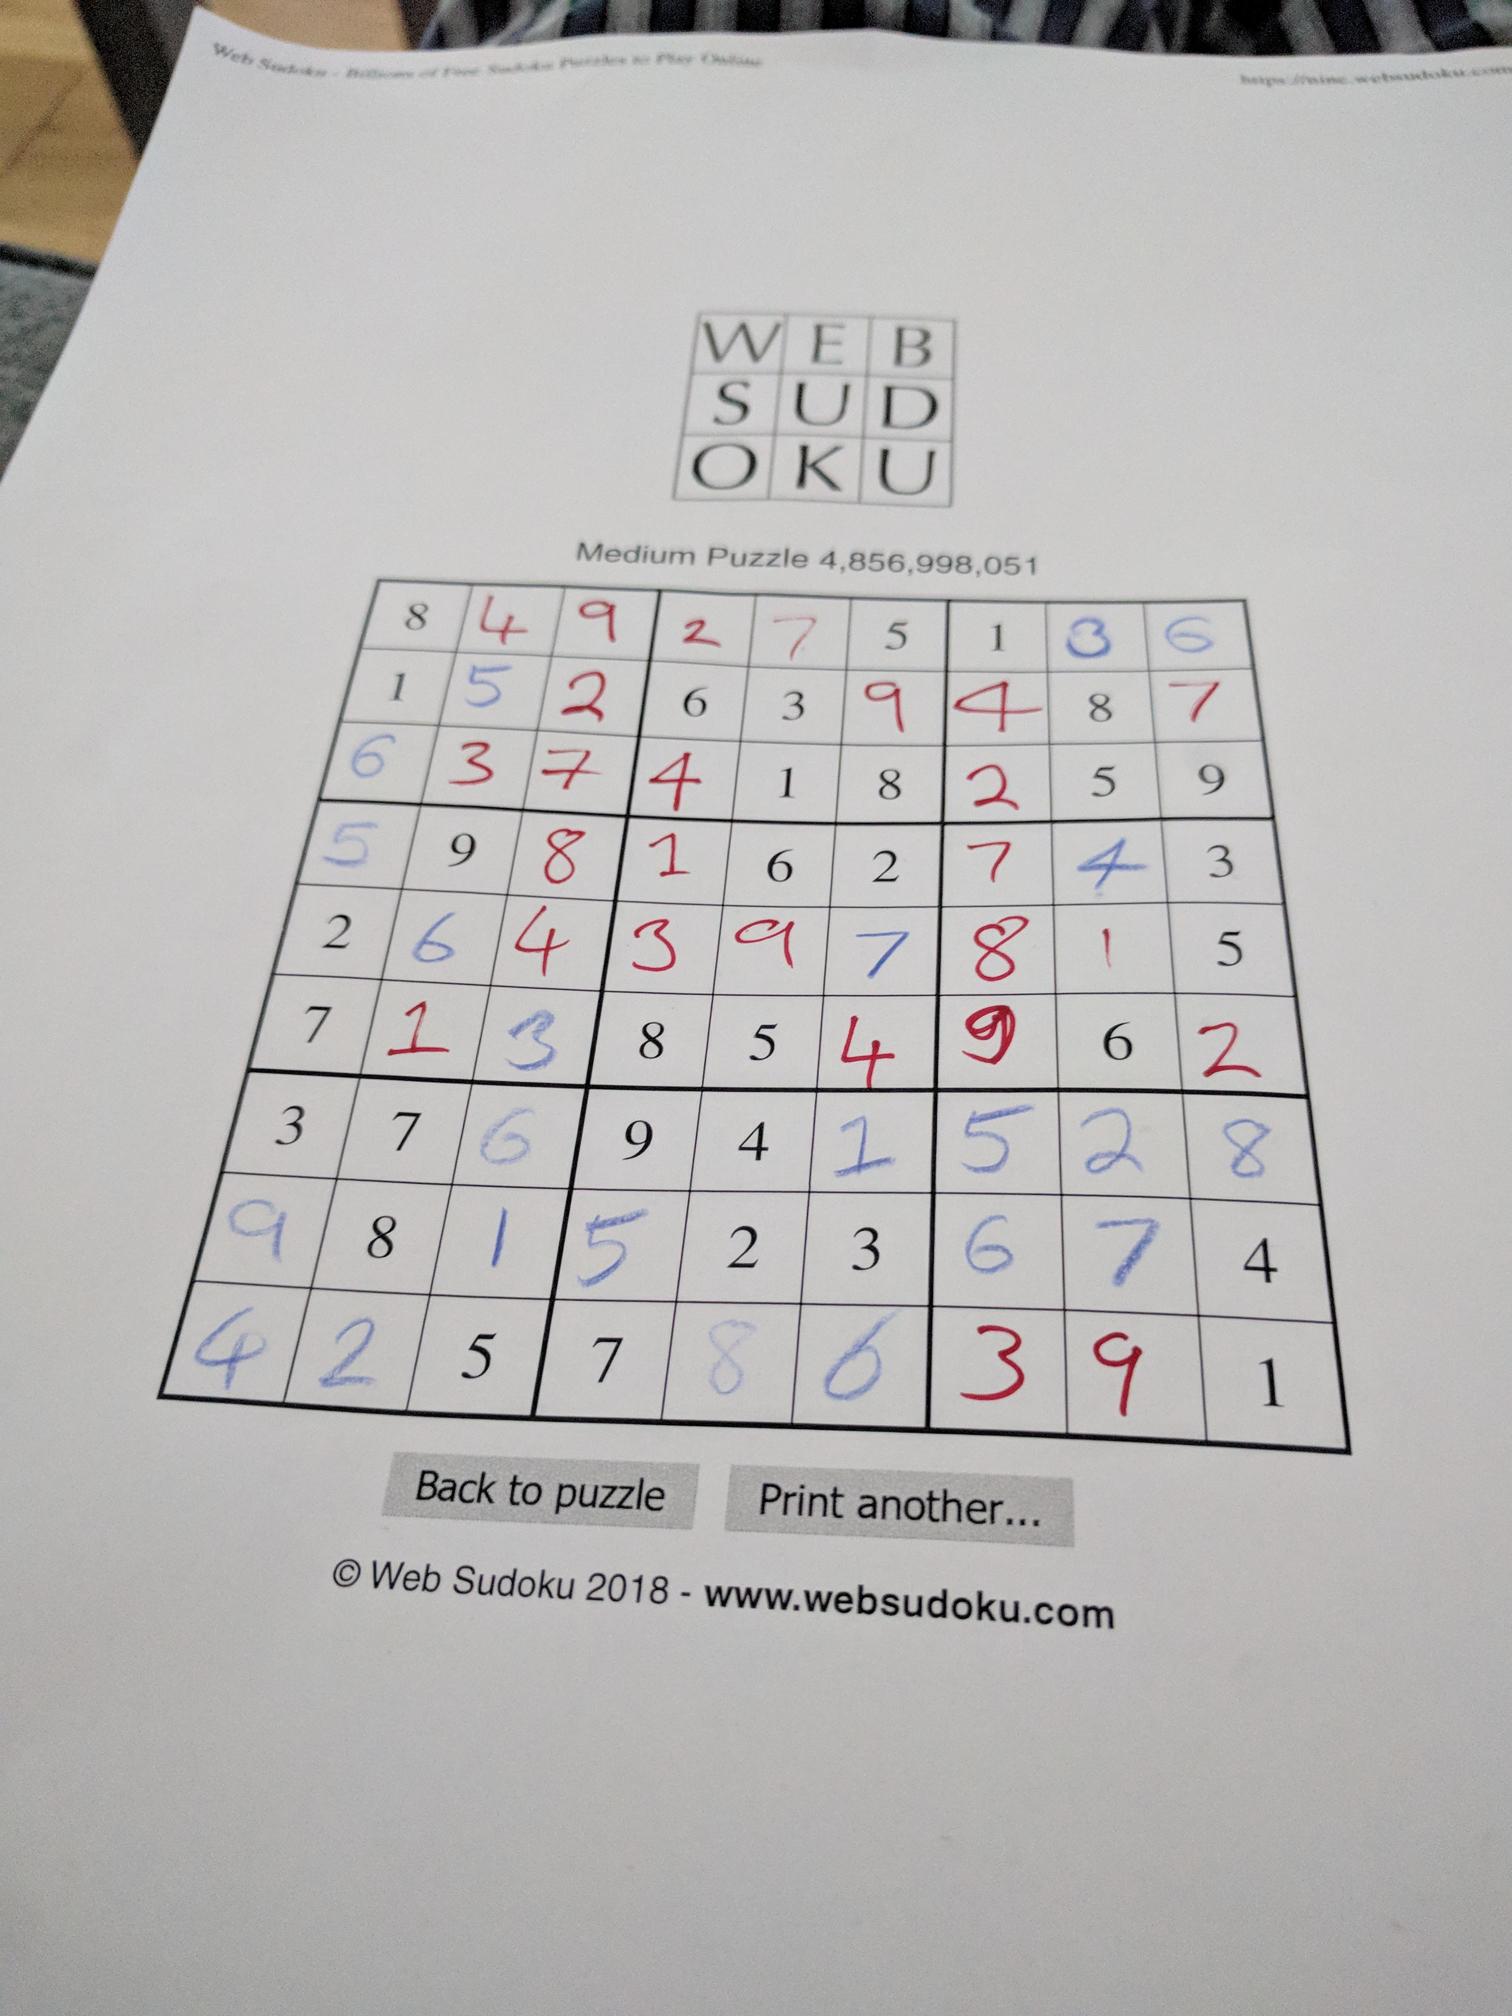 Web Sudoku - Billions of Free Sudoku Puzzles to Play Online
https://nine.websudoku.com
W E B
S U D
O K U
Medium Puzzle 4,856,998,051
8 4 9 2 7 5 1 3 6
1 5 2 6 3 9 4 8 7
6 3 7 4 1 8 2 5 9
5 9 8 1 6 2 7 4 3
2 6 4 3 9 7 8 1 5
7 1 3 8 5 4 9 6 2
3 7 6 9 4 1 5 2 8
9 8 1 5 2 3 6 7 4
4 2 5 7 8 6 3 9 1
Back to puzzle Print another...
© Web Sudoku 2018 - www.websudoku.com